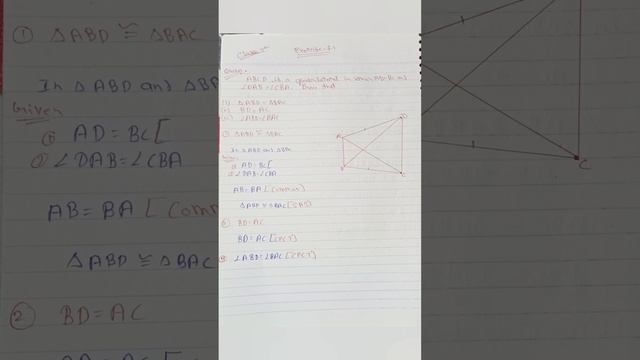 ① △ABD ≅ △BAC
In △ABD and △BA
Given
① AD = BC [
② ∠DAB = ∠CBA
AB = BA [Comm
△ABD ≅ △BAC
② BD = AC
Class 9th Exercise 7.1
ABCD is a quadrilateral in which AD=BC and
∠DAB = ∠CBA. Prove that
(i) △ABD ≅ △BAC
(ii) BD = AC
(iii) ∠ABD = ∠BAC
① △ABD ≅ △BAC
In △ABD and △BAC
Given
① AD = BC [
② ∠DAB = ∠CBA
AB = BA [Common]
△ABD ≅ △BAC [SAS]
② BD = AC
BD = AC [CPCT]
∠ABD = ∠BAC [CPCT]
A
D
B
C
C